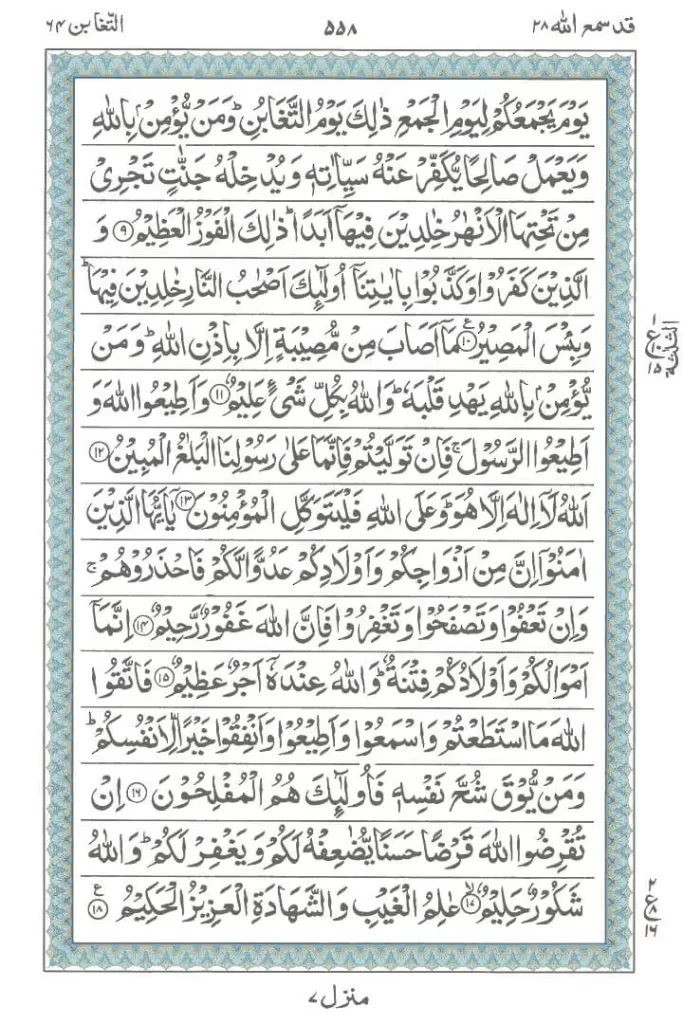 قد سمع الله ۲۸ ۵۵۸ التغابن ۶۴
يَوْمَ يَجْمَعُكُمْ لِيَوْمِ الْجَمْعِ ذٰلِكَ يَوْمُ التَّغَابُنِ ؕ وَمَنْ يُّؤْمِنْۢ بِاللّٰهِ
وَيَعْمَلْ صَالِحًا يُّكَفِّرْ عَنْهُ سَيِّاٰتِهٖ وَيُدْخِلْهُ جَنّٰتٍ تَجْرِیْ
مِنْ تَحْتِهَا الْاَنْهٰرُ خٰلِدِيْنَ فِيْهَاۤ اَبَدًا ؕ ذٰلِكَ الْفَوْزُ الْعَظِيْمُ ۹ وَ
الَّذِيْنَ كَفَرُوْا وَكَذَّبُوْا بِاٰيٰتِنَاۤ اُولٰٓئِكَ اَصْحٰبُ النَّارِ خٰلِدِيْنَ فِيْهَا ؕ
وَبِئْسَ الْمَصِيْرُ ۱۰ ع مَاۤ اَصَابَ مِنْ مُّصِيْبَةٍ اِلَّا بِاِذْنِ اللّٰهِ ؕ وَمَنْ
يُّؤْمِنْۢ بِاللّٰهِ يَهْدِ قَلْبَهٗ ؕ وَاللّٰهُ بِكُلِّ شَیْءٍ عَلِيْمٌ ۱۱ وَاَطِيْعُوا اللّٰهَ وَ
اَطِيْعُوا الرَّسُوْلَ ۚ فَاِنْ تَوَلَّيْتُمْ فَاِنَّمَا عَلٰی رَسُوْلِنَا الْبَلٰغُ الْمُبِيْنُ ۱۲
اَللّٰهُ لَاۤ اِلٰهَ اِلَّا هُوَ ؕ وَعَلَی اللّٰهِ فَلْيَتَوَكَّلِ الْمُؤْمِنُوْنَ ۱۳ يٰۤاَيُّهَا الَّذِيْنَ
اٰمَنُوْۤا اِنَّ مِنْ اَزْوَاجِكُمْ وَاَوْلَادِكُمْ عَدُوًّا لَّكُمْ فَاحْذَرُوْهُمْ ۚ
وَاِنْ تَعْفُوْا وَتَصْفَحُوْا وَتَغْفِرُوْا فَاِنَّ اللّٰهَ غَفُوْرٌ رَّحِيْمٌ ۱۴ اِنَّمَاۤ
اَمْوَالُكُمْ وَاَوْلَادُكُمْ فِتْنَةٌ ؕ وَاللّٰهُ عِنْدَهٗۤ اَجْرٌ عَظِيْمٌ ۱۵ فَاتَّقُوا
اللّٰهَ مَا اسْتَطَعْتُمْ وَاسْمَعُوْا وَاَطِيْعُوْا وَاَنْفِقُوْا خَيْرًا لِّاَنْفُسِكُمْ ؕ
وَمَنْ يُّوْقَ شُحَّ نَفْسِهٖ فَاُولٰٓئِكَ هُمُ الْمُفْلِحُوْنَ ۱۶ اِنْ
تُقْرِضُوا اللّٰهَ قَرْضًا حَسَنًا يُّضٰعِفْهُ لَكُمْ وَيَغْفِرْ لَكُمْ ؕ وَاللّٰهُ
شَكُوْرٌ حَلِيْمٌ ۱۷ عٰلِمُ الْغَيْبِ وَالشَّهَادَةِ الْعَزِيْزُ الْحَكِيْمُ ۱۸ ع
۱
ع ۱۰
۱۵
الثلثة
۲
ع ۸
۱۶
منزل ۷